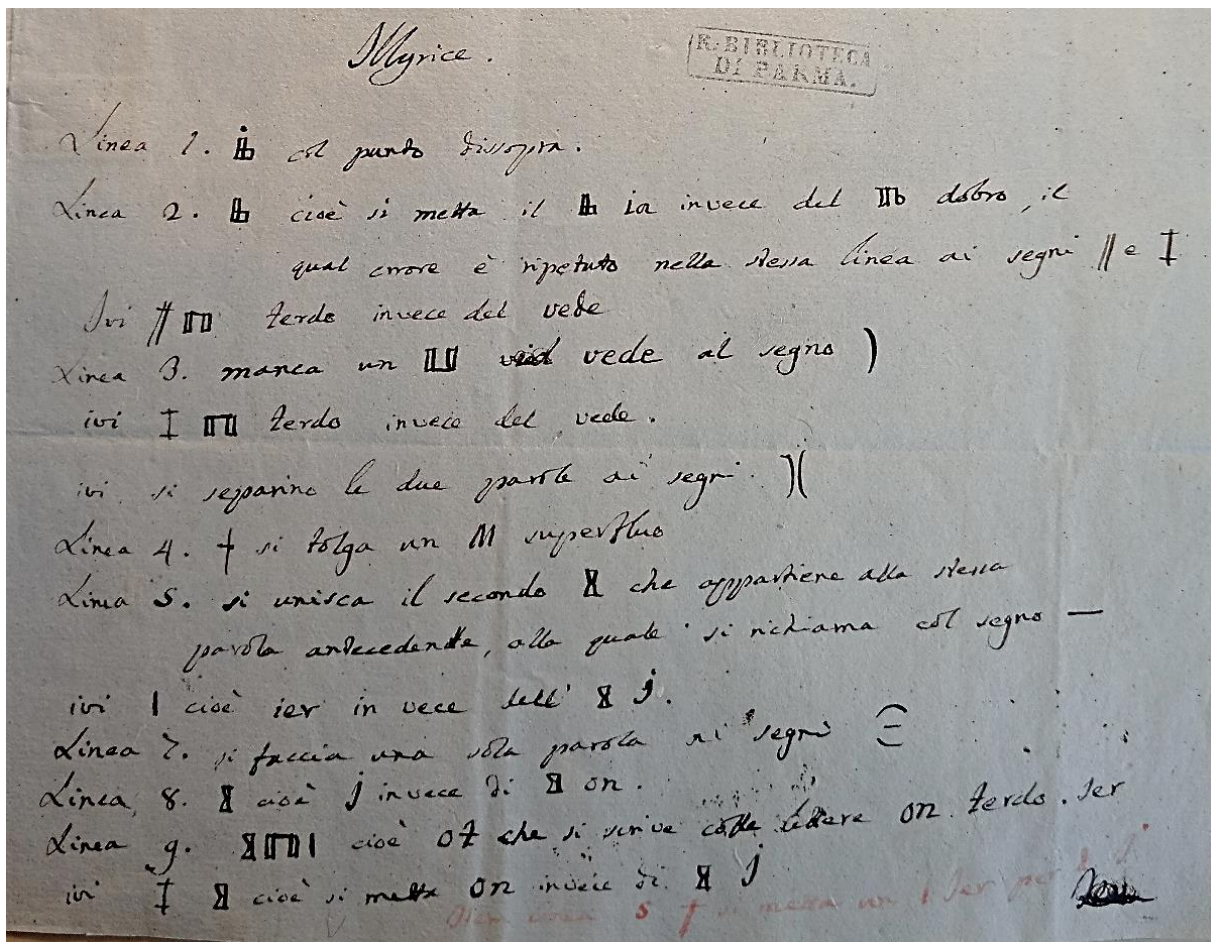 Illyrice.
R. BIBLIOTECA
DI PARMA.
Linea 1. Ⱑ col punto dissopra.
Linea 2. Ⱑ cioè si metta il Ⱑ ia invece del Ⰴ dobro, il
qual errore è ripetuto nella stessa linea ai segni // e ‡
Ivi Ⱅ terdo invece del vede
Linea 3. manca un Ⰲ vede al segno )
ivi Ⱅ terdo invece del vede.
ivi si sepparino le due parole ai segni. )(
Linea 4. † si tolga un M superfluo
Linea 5. si unisca il secondo che appartiene alla stessa
parola antecedente, alla quale si richiama col segno —
ivi I cioè ier in vece dell' j.
Linea 7. si faccia una sola parola ai segni
Linea 8. cioè j invece di on.
Linea 9. cioè ot che si scrive colle lettere on terdo. Jer
ivi cioè si metta on invece di j
linea 5 † si metta un I Jer per